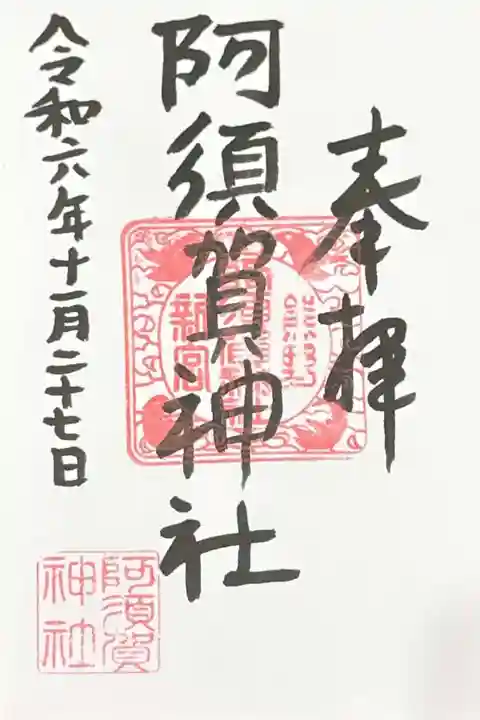 奉拝
阿須賀神社
令和六年十一月二十七日
新宮
阿須賀
神社